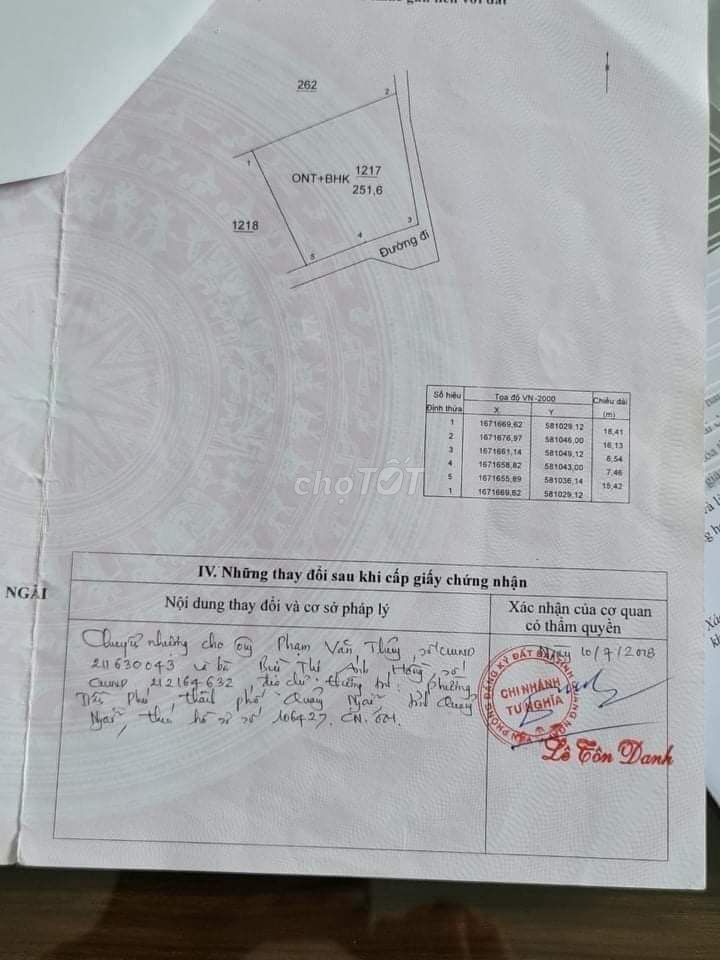 gắn liền với đất
262
2
1
ONT+BHK 1217
251,6
1218
3
4
5
Đường đi
Số hiệu Đỉnh thửa Tọa độ VN-2000 Chiều dài (m)
X Y
1 1671669,62 581029,12
18,41
2 1671676,97 581046,00
16,13
3 1671661,14 581049,12
6,54
4 1671658,82 581043,00
7,46
5 1671655,69 581036,14
15,42
1 1671669,62 581029,12
chợTỐT
NGÃI
IV. Những thay đổi sau khi cấp giấy chứng nhận
Nội dung thay đổi và cơ sở pháp lý
Xác nhận của cơ quan có thẩm quyền
Chuyển nhượng cho ông Phạm Văn Thủy, số CMND
211630043 và bà Bùi Thị Ánh Hồng số
CMND 212164632 địa chỉ thường trú: phường
Trần Phú thành phố Quảng Ngãi tỉnh Quảng
Ngãi, theo hồ sơ số 106427.CN.001.
Ngày 10/7/2018
CHI NHÁNH
TƯ NGHĨA
Lê Tôn Danh